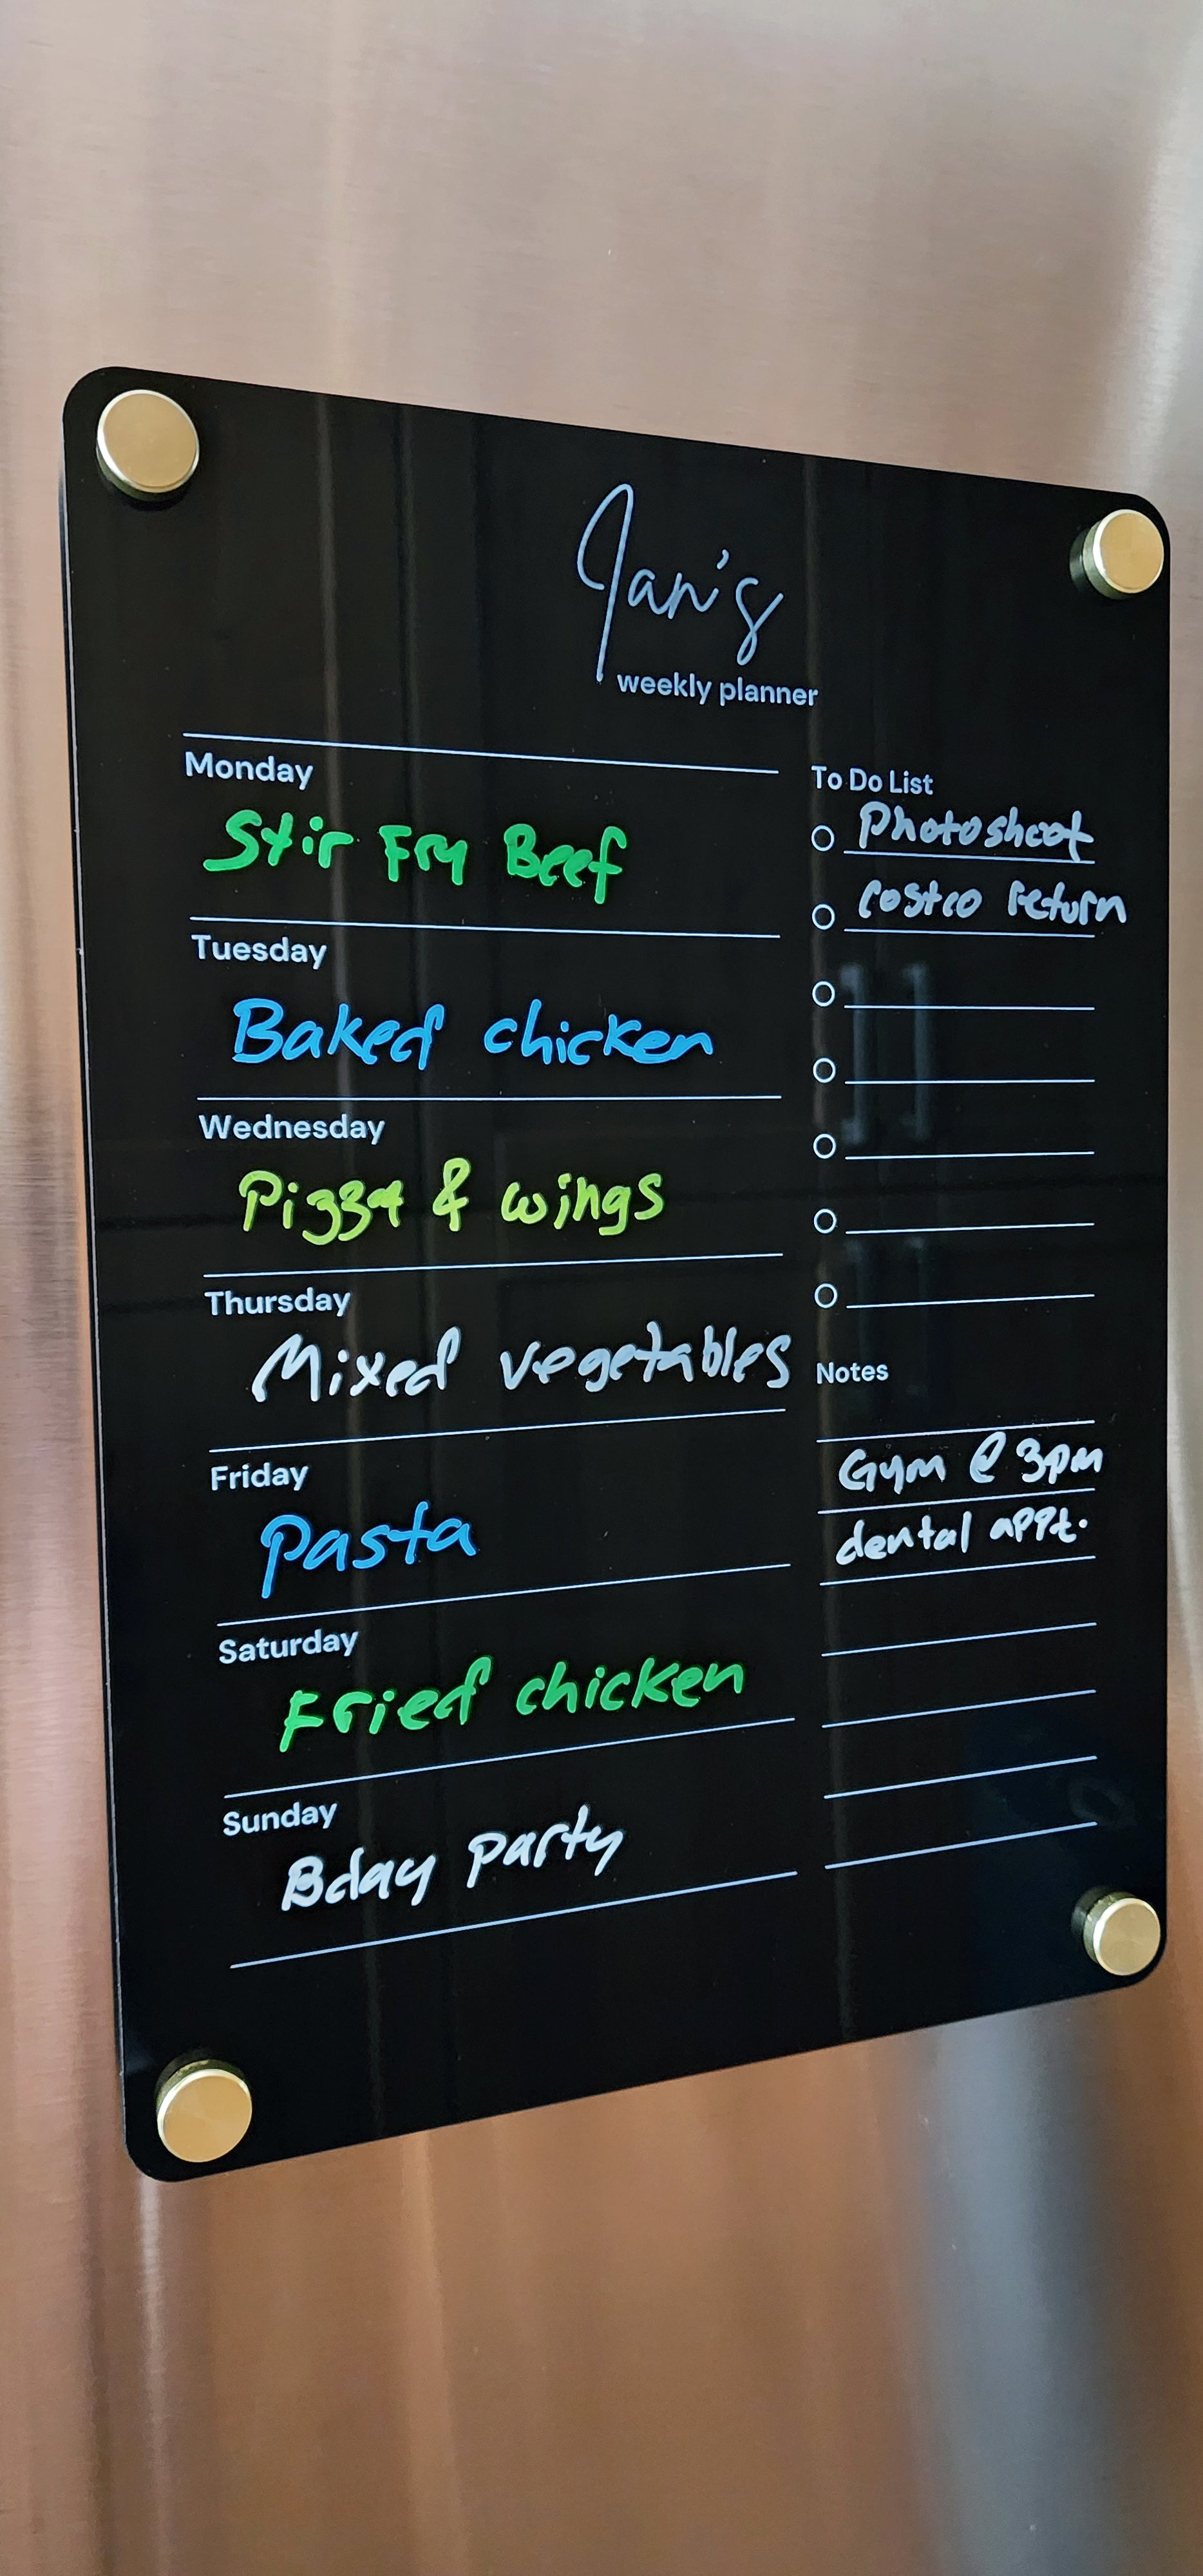 Jan's
weekly planner
Monday
Stir Fry Beef
Tuesday
Baked chicken
Wednesday
Pizza & wings
Thursday
Mixed vegetables
Friday
Pasta
Saturday
Fried chicken
Sunday
Bday Party
To Do List
Photoshoot
Costco return
Notes
Gym @ 3pm
dental appt.